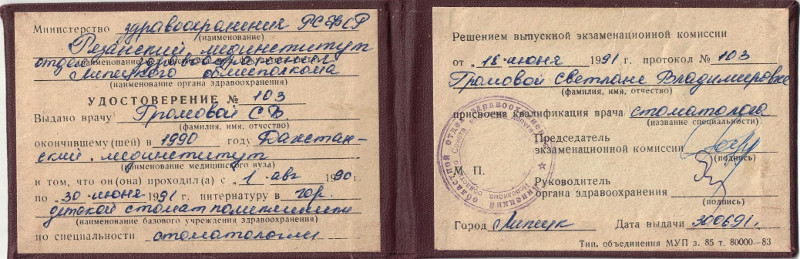 Министерство здравоохранения РСФСР
(наименование)
Рязанский мединститут
(наименование)
отдел здравоохранения
Липецкого облисполкома
(наименование органа здравоохранения)
УДОСТОВЕРЕНИЕ № 103
Выдано врачу Громовой С.В.
(фамилия, имя, отчество)
окончившему (шей) в 1990 году Дагестан-
ский мединститут
(наименование медицинского вуза)
в том, что он(она) проходил(а) с "1" авг 1990г.
по "30" июня 1991 г. интернатуру в гор.
детской стомат. поликлинике
(наименование базового учреждения здравоохранения)
по специальности стоматологии
Решением выпускной экзаменационной комиссии
от "18" июня 1991 г. протокол № 103
Громовой Светлане Владимировне
(фамилия, имя, отчество)
присвоена квалификация врача стоматолога
(название специальности)
Председатель
экзаменационной комиссии
(подпись)
М. П.
Руководитель
органа здравоохранения
(подпись)
Город Липецк Дата выдачи 300691г.
Тип. объединения МУП з. 85 т. 80000—83